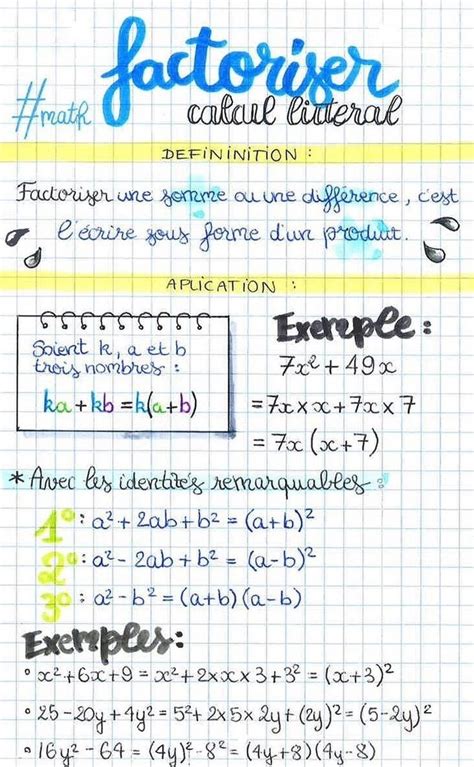 factoriser
#math
calcul littéral
DEFININITION :
Factoriser une somme ou une différence, c'est
l'écrire sous forme d'un produit.
APLICATION :
Soient k, a et b
trois nombres :
ka + kb = k(a+b)
Exemple :
7x² + 49x
= 7x × x + 7x × 7
= 7x (x+7)
* Avec les identités remarquables :
1° : a² + 2ab + b² = (a+b)²
2° : a² - 2ab + b² = (a-b)²
3° : a² - b² = (a+b) (a-b)
Exemples :
° x² + 6x + 9 = x² + 2×x×3 + 3² = (x+3)²
° 25 - 20y + 4y² = 5² + 2×5×2y + (2y)² = (5-2y)²
° 16y² - 64 = (4y)² - 8² = (4y+8)(4y-8)